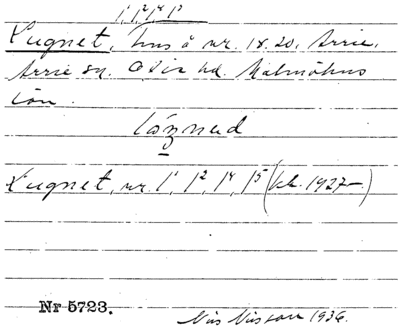 1¹, 1², 1⁴, 1⁵
Lugnet, hus å nr. 18, 20, Arrie,
Arrie sn. Oxie hd. Malmöhus
län.
Lugnet, nr. 1¹, 1², 1⁴, 1⁵ (kb. 1927–)
Nr 5723.
Nils Nilsson 1936.